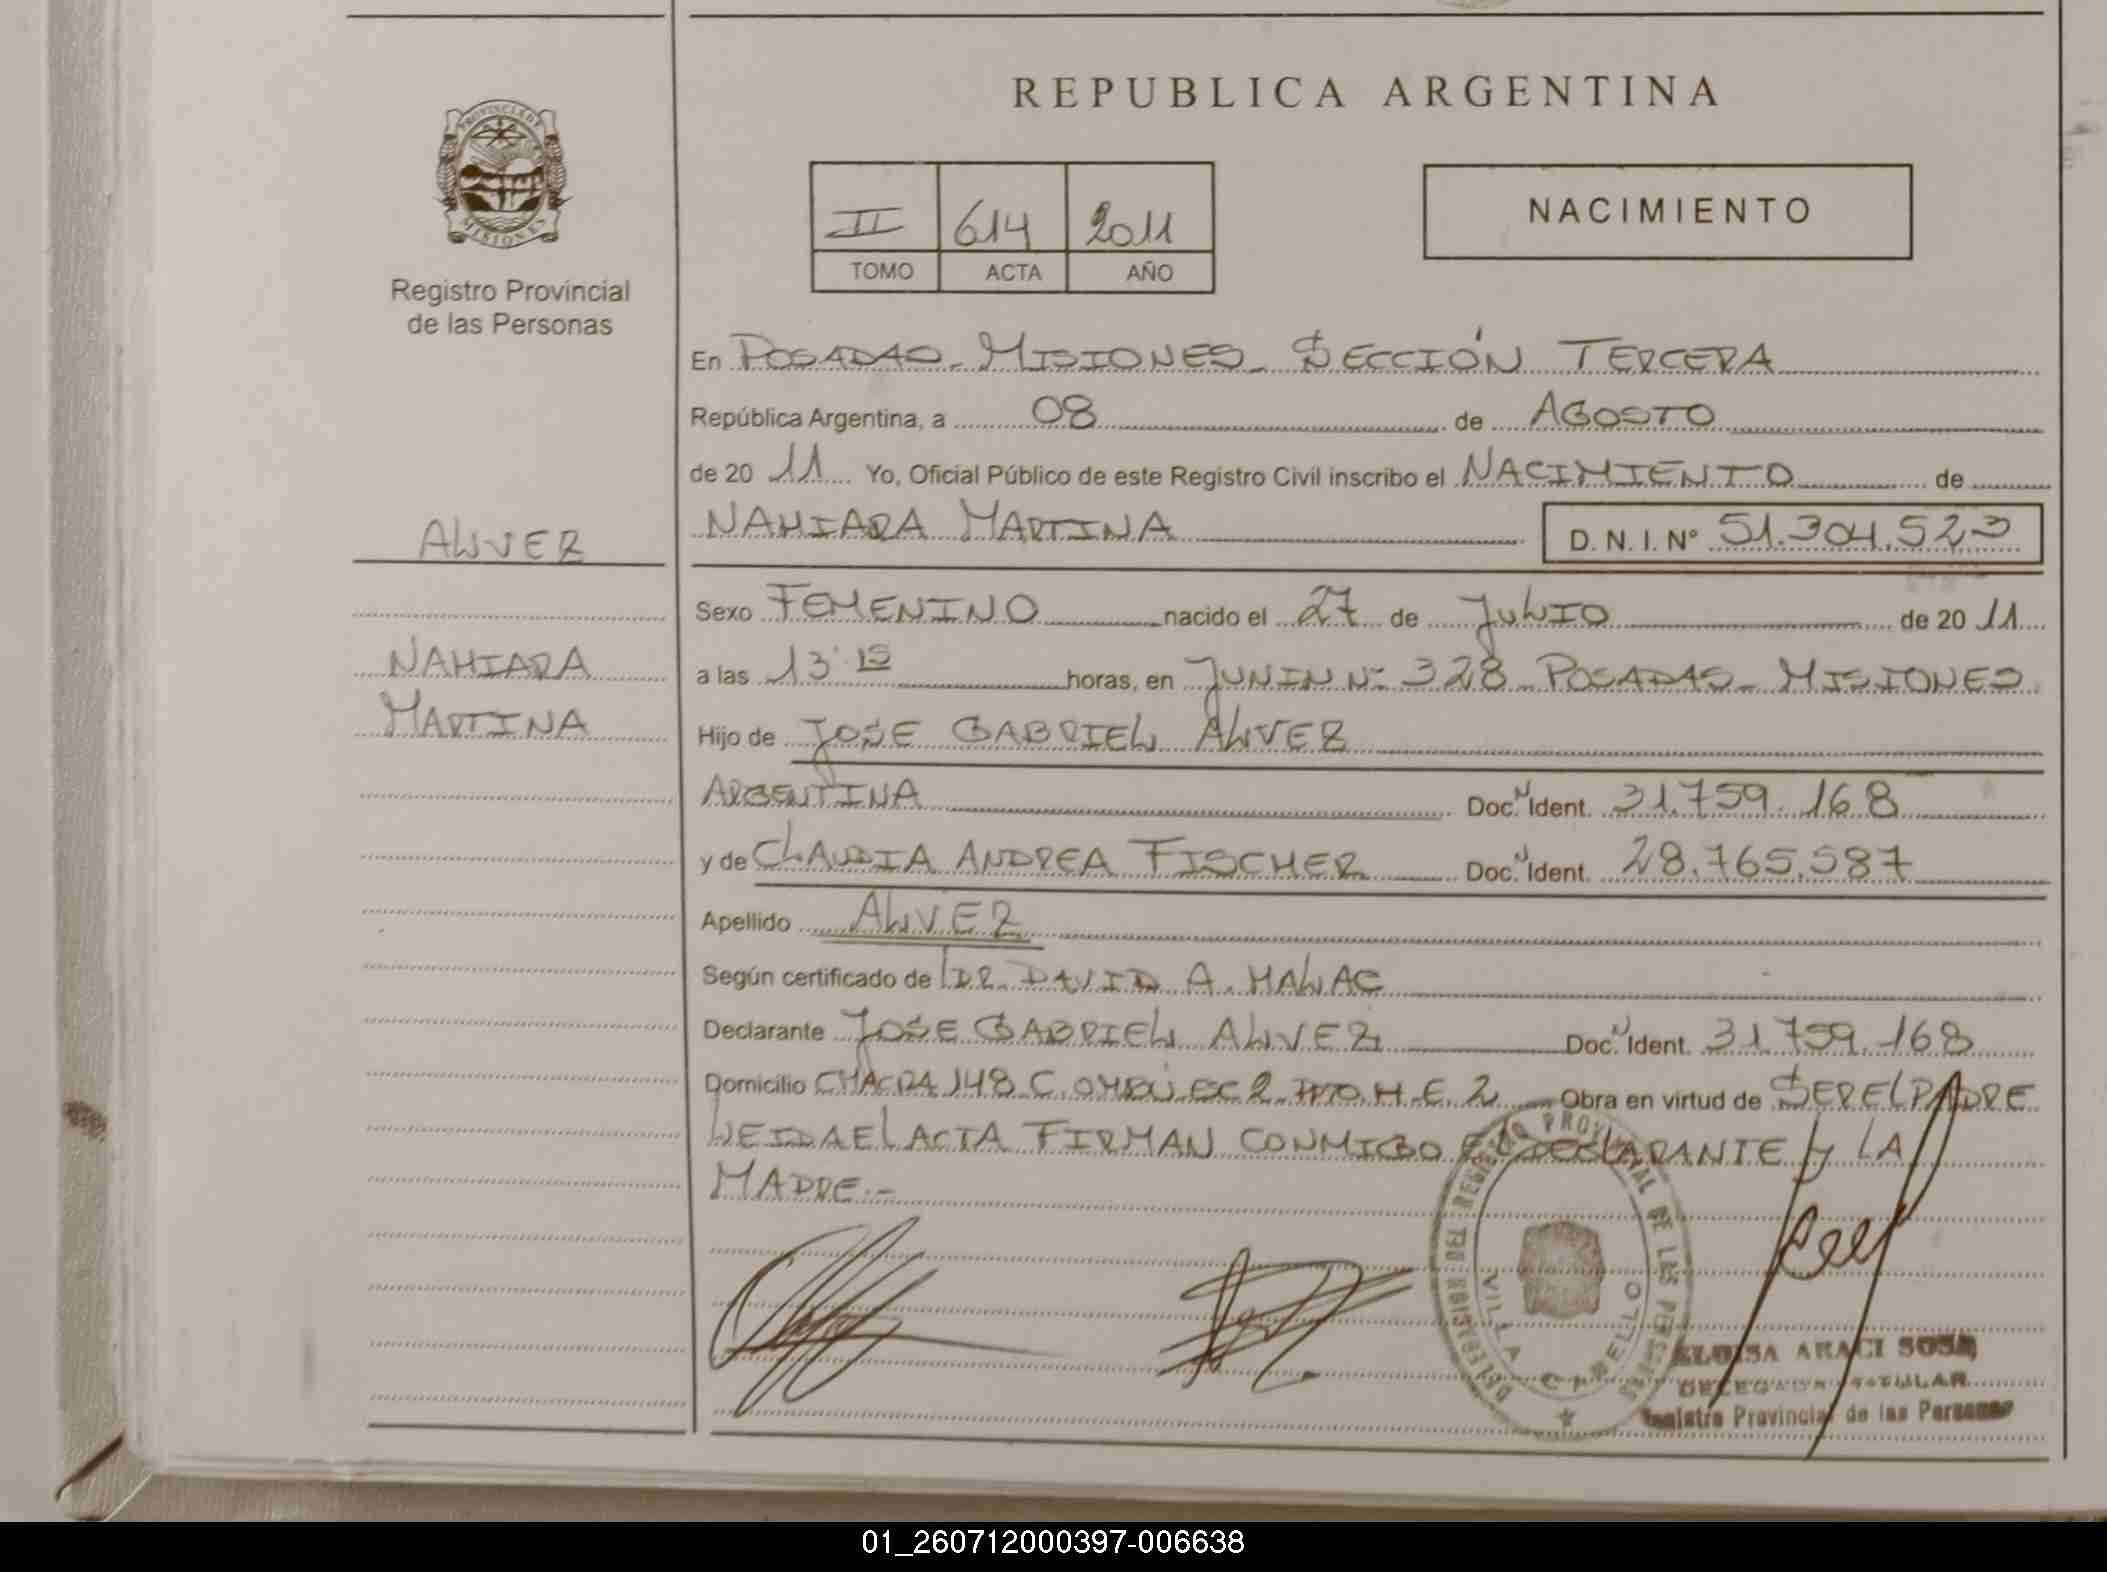 REPUBLICA ARGENTINA
PROVINCIA DE
MISIONES
Registro Provincial
de las Personas
II 614 2011
TOMO ACTA AÑO
NACIMIENTO
En POSADAS - MISIONES - SECCIÓN TERCERA
República Argentina, a 08 de AGOSTO
de 20 11 Yo, Oficial Público de este Registro Civil inscribo el NACIMIENTO de
NAHIARA MARTINA D. N. I. Nº 51.304.523
ALVEZ
NAHIARA
MARTINA
Sexo FEMENINO nacido el 27 de JULIO de 20 11
a las 13:15 horas, en JUNIN Nº 328 POSADAS - MISIONES
Hijo de JOSE GABRIEL ALVEZ
ARGENTINA Doc. Ident. 31.759.168
y de CLAUDIA ANDREA FISCHER Doc. Ident. 28.765.587
Apellido ALVEZ
Según certificado de DR. DAVID A. HALAC
Declarante JOSE GABRIEL ALVEZ Doc. Ident. 31759.168
Domicilio CHACRA 148 C. OMBÚ EC 2 M.E. 2 Obra en virtud de SER EL PADRE
LEIDA EL ACTA FIRMAN CONMIGO EL DECLARANTE Y LA
MADRE.-
DELEGACION REGISTRO PROVINCIAL DE LAS PERSONAS
VILLA CABELLO
ELOISA ARACI SOSA
DELEGADA TITULAR
Registro Provincial de las Personas
01_260712000397-006638